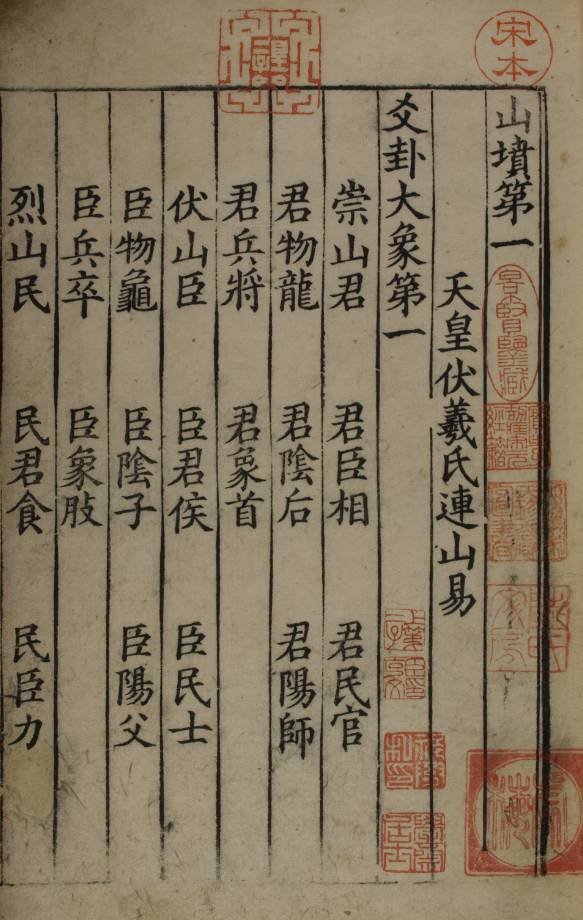 宋本
山墳第一
天皇伏羲氏連山易
爻卦大象第一
崇山君 君臣相 君民官
君物龍 君陰后 君陽師
君兵將 君象首
伏山臣 臣君侯 臣民士
臣物龜 臣陰子 臣陽父
臣兵卒 臣象股
烈山民 民君食 民臣力